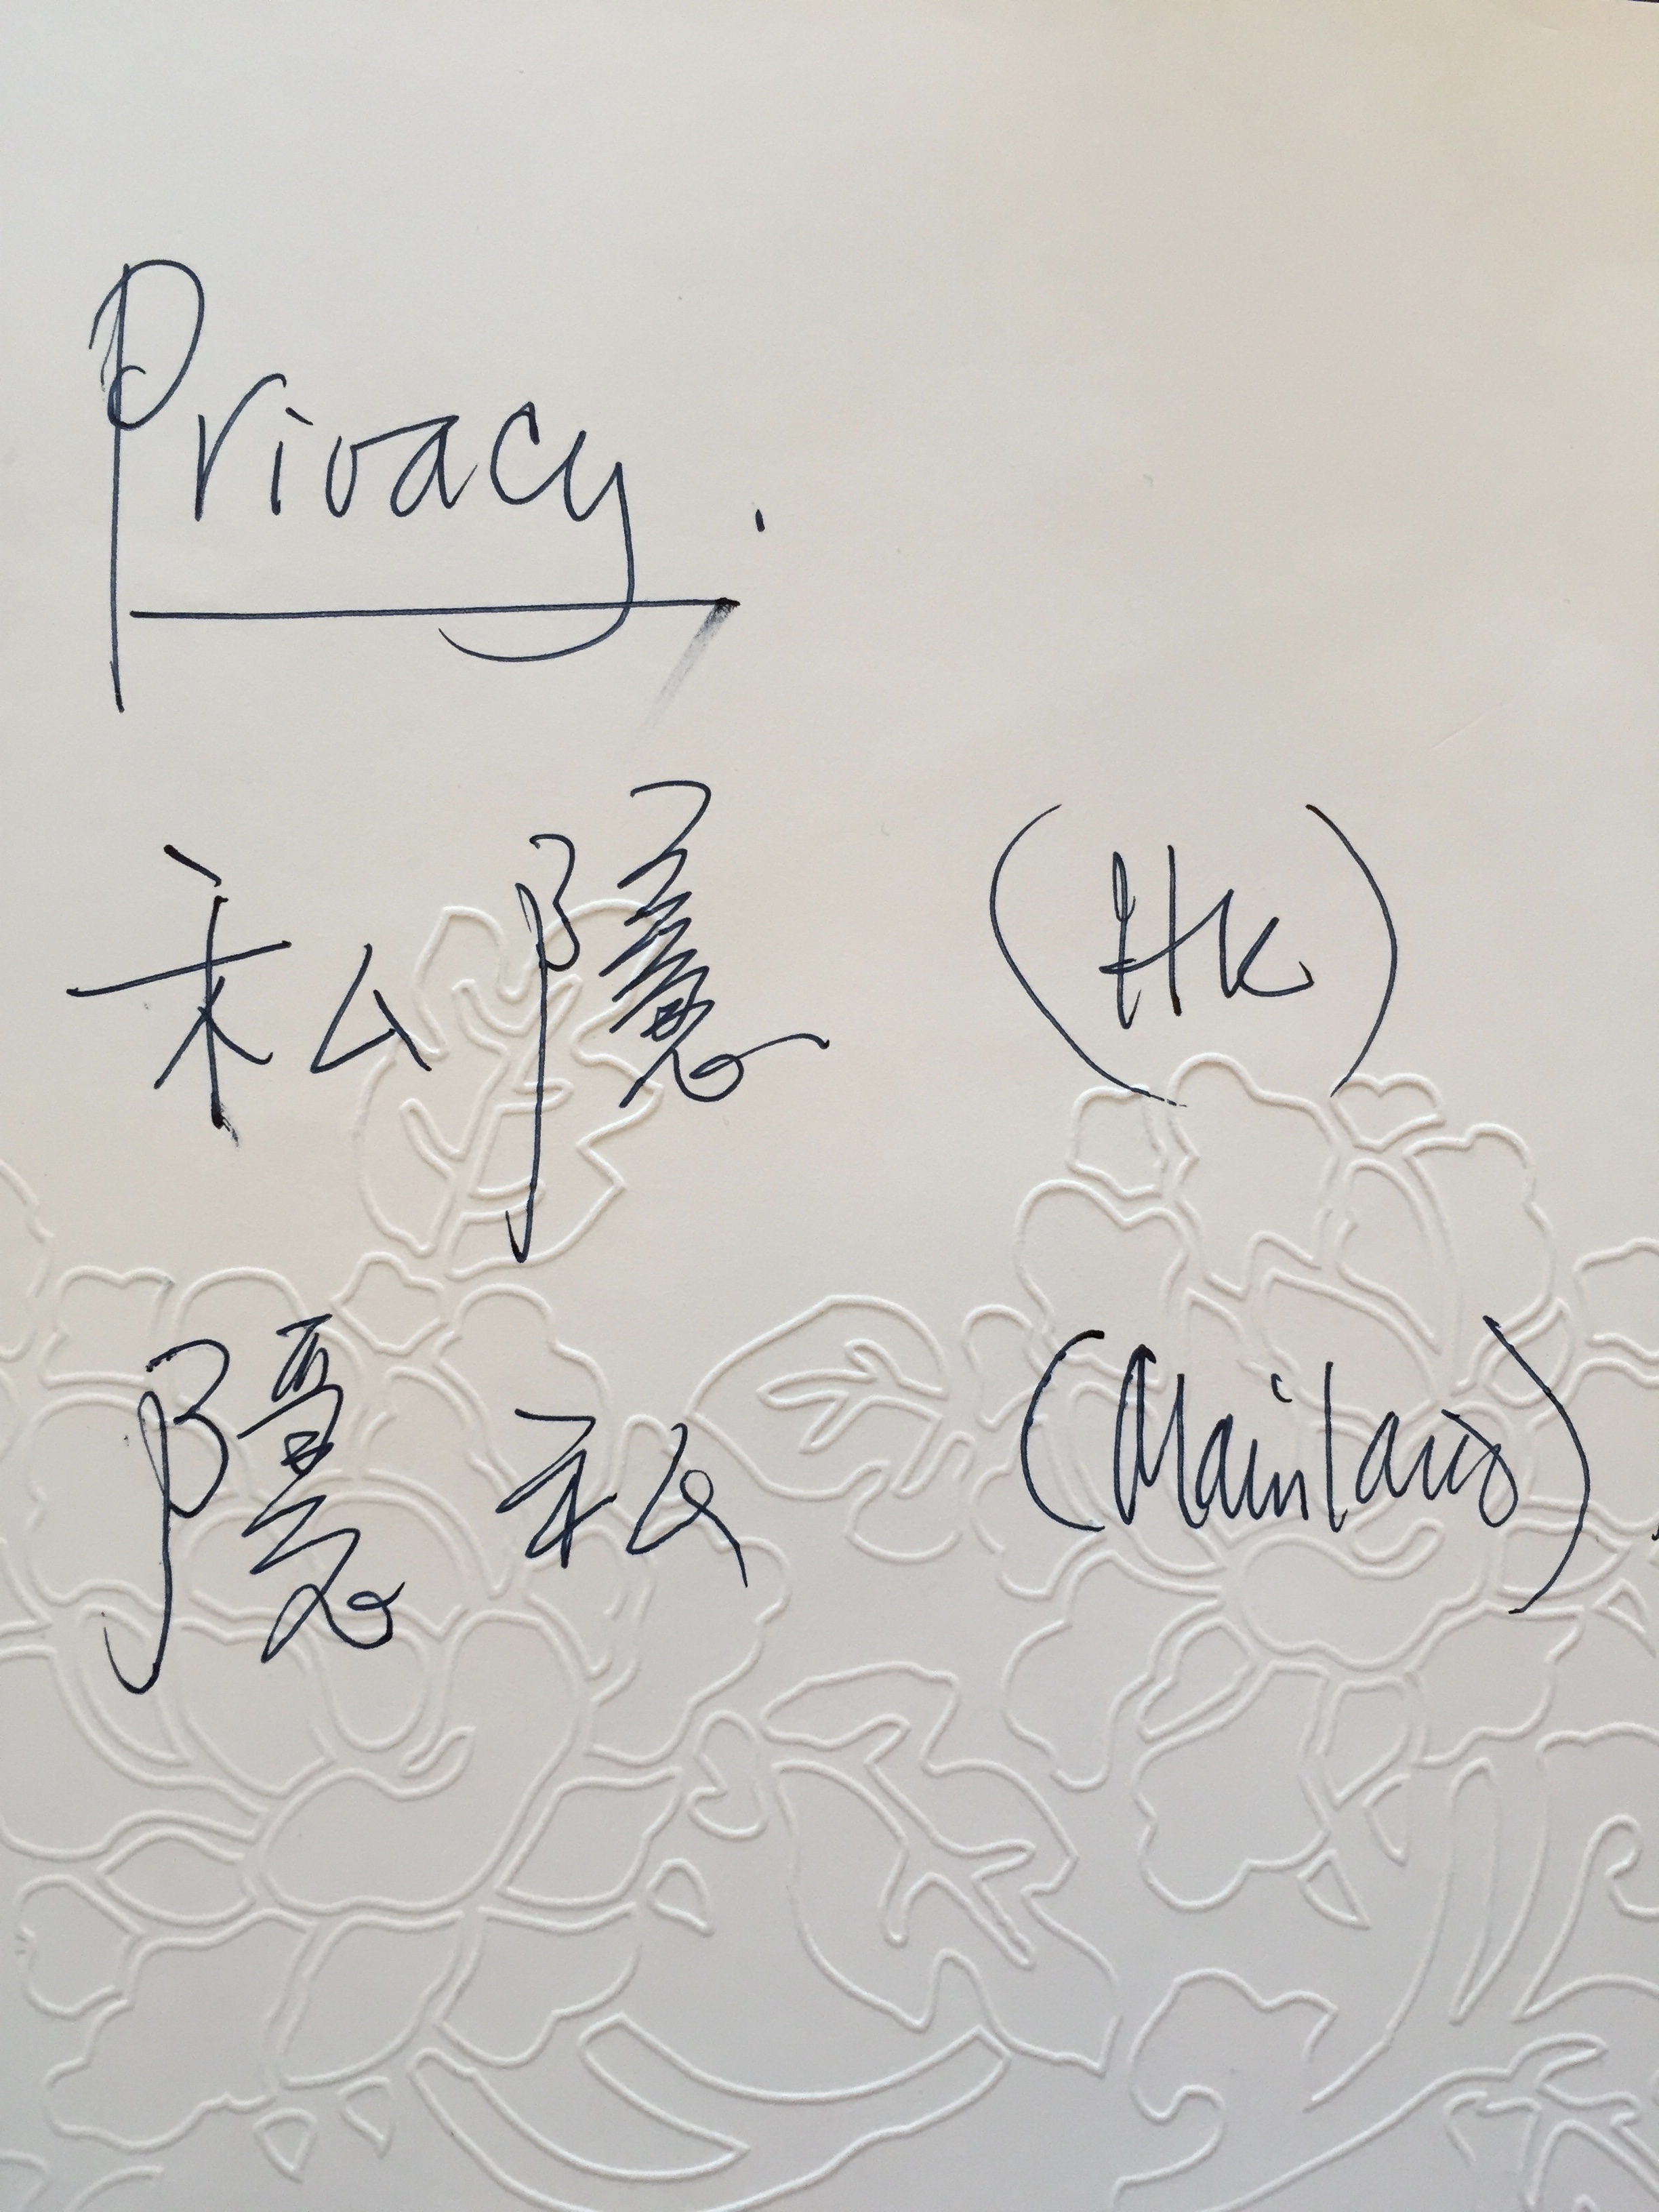 Privacy.
私隱 (HK)
隱私 (Mainland)